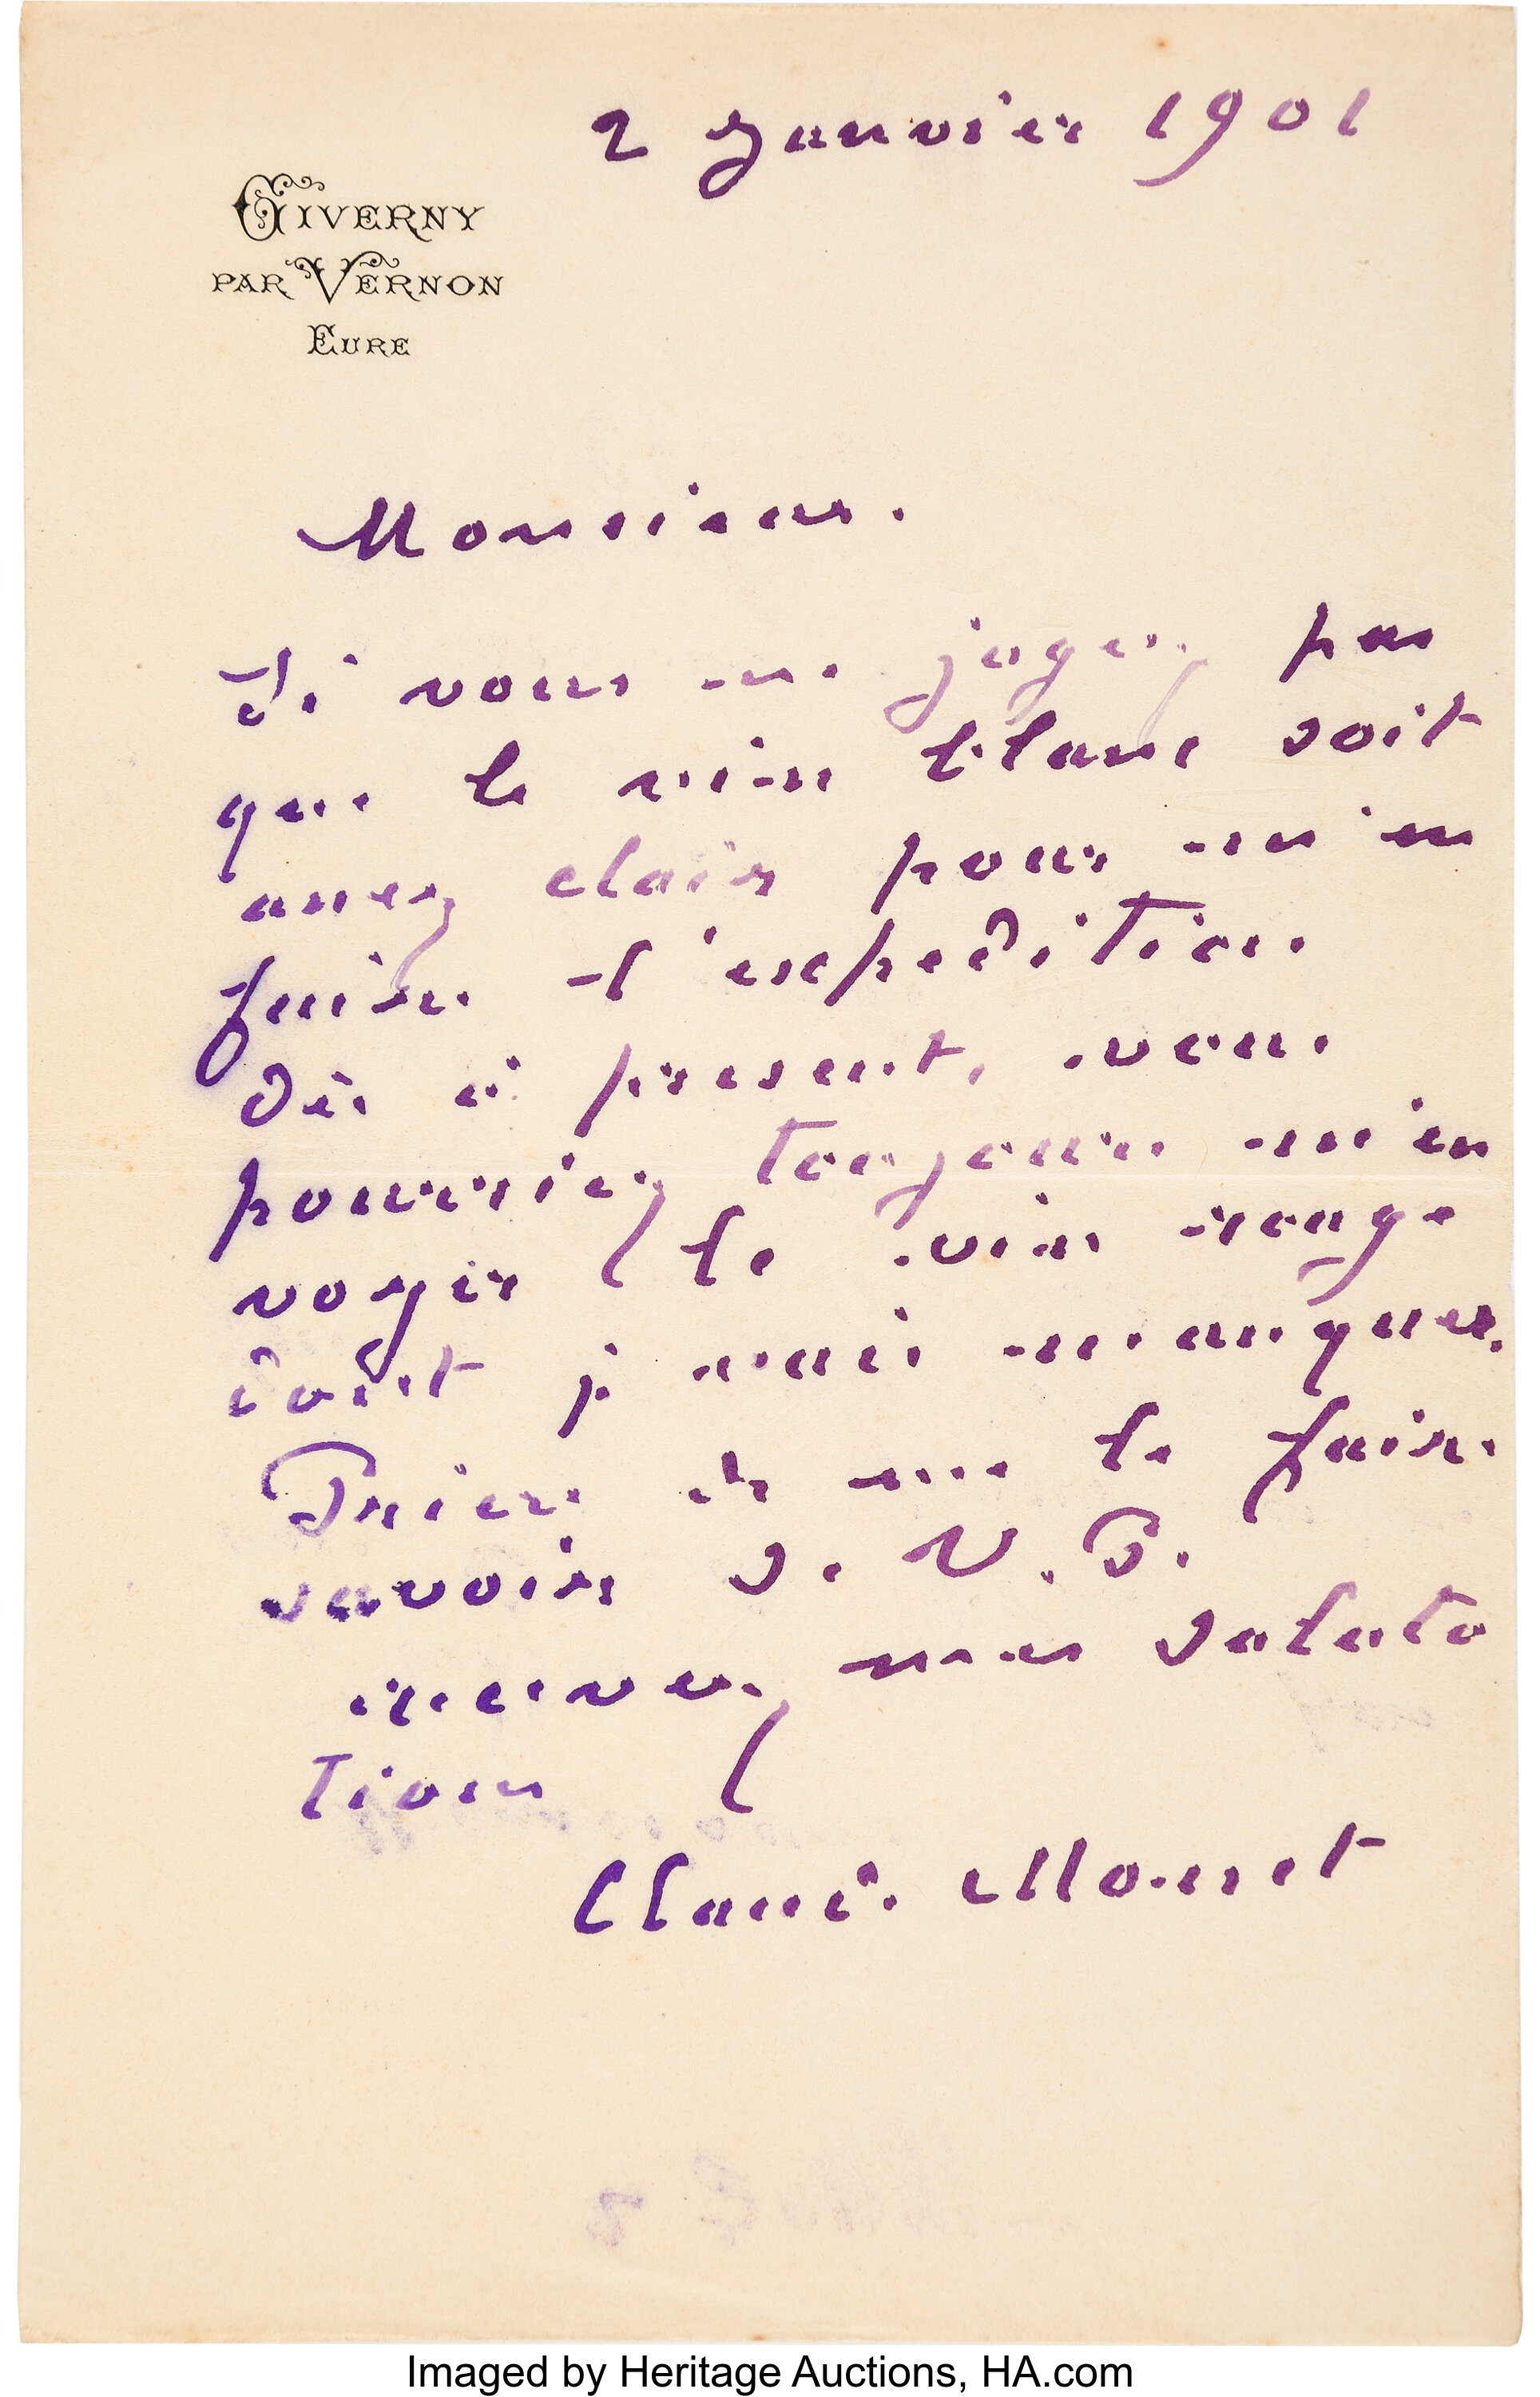 2 Janvier 1901
GIVERNY
PAR VERNON
EURE
Monsieur.
Si vous ne jugez pas
que le vin blanc soit
assez clair pour m'en
faire l'expedition
dès à present, vous
pourriez toujours m'en
voyer le vin rouge
dont je vais manquer.
Prière de me le faire
savoir S. V. P.
recevez mes saluta
tions
Claude Monet
Imaged by Heritage Auctions, HA.com